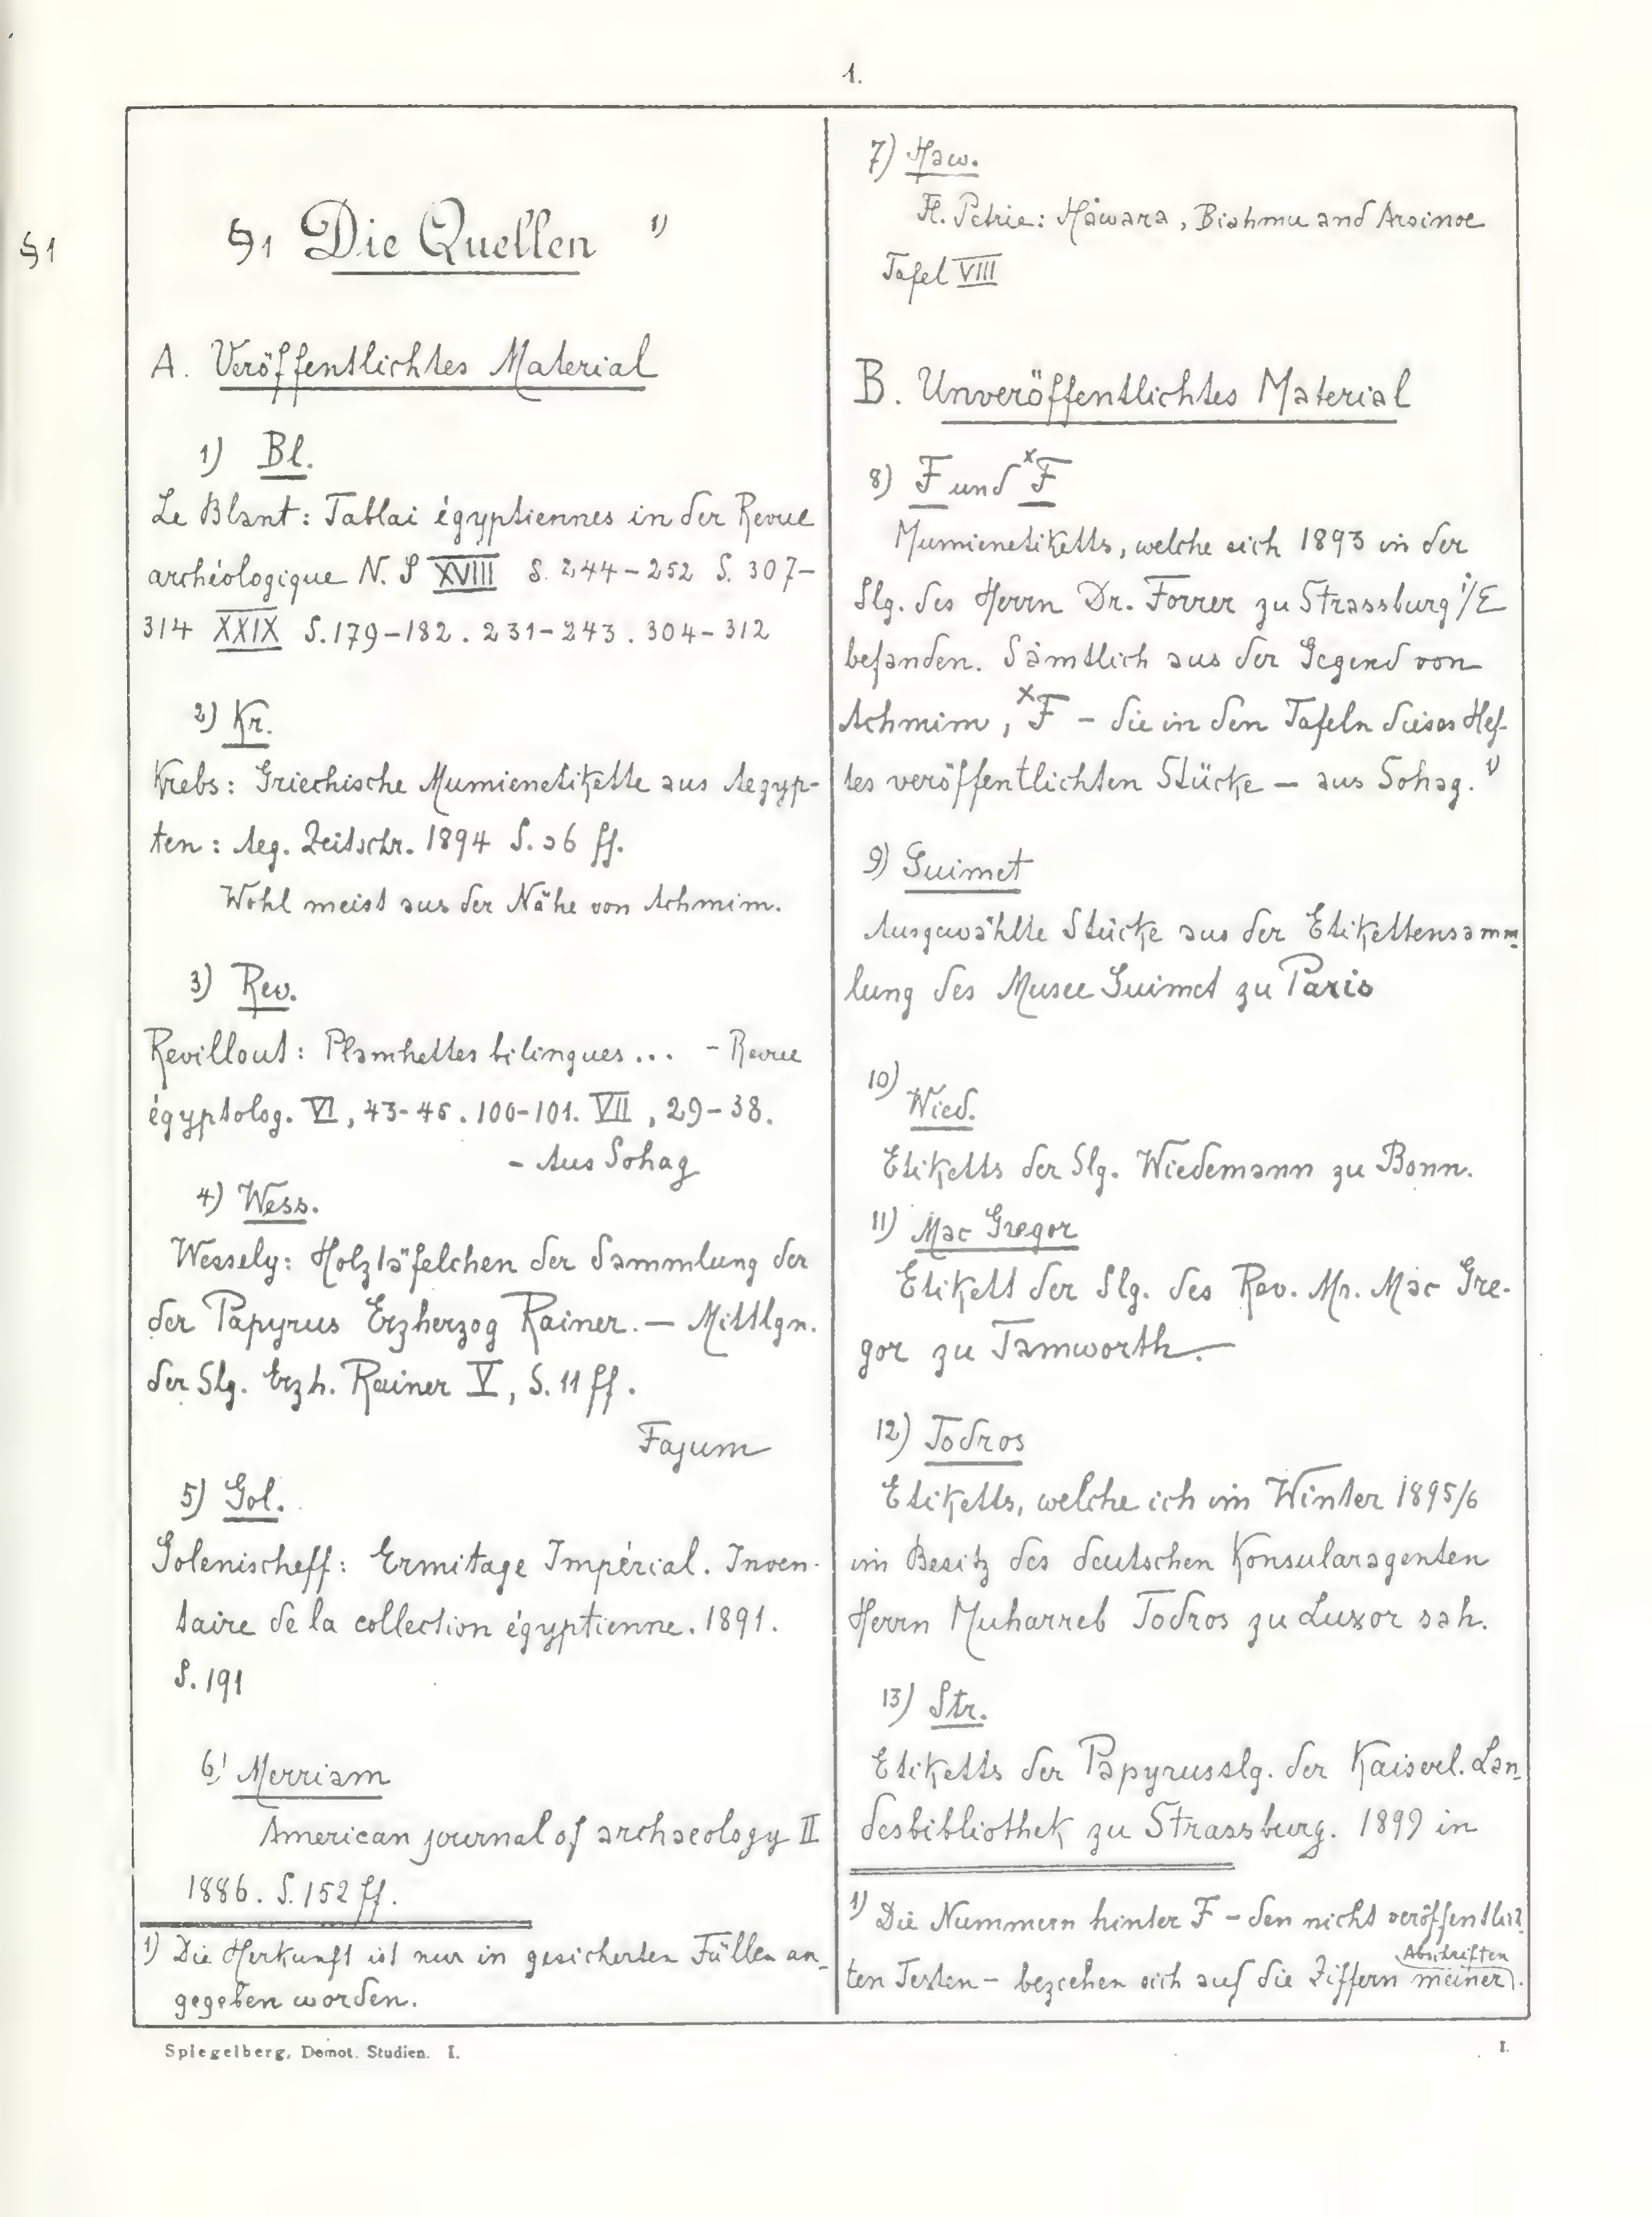 1.
§1
§1 Die Quellen 1)
A. Veröffentlichtes Material
1) Bl.
Le Blant: Tablai égyptiennes in der Revue
archéologique N. S XVIII S. 244-252 S. 307-
314 XXIX S. 179-182. 231-243. 304-312
2) Kr.
Krebs: Griechische Mumienetikette aus Aegyp-
ten: Aeg. Zeitschr. 1894 S. 36 ff.
Wohl meist aus der Nähe von Achmim.
3) Rev.
Revillout: Planchettes bilingues... - Revue
égyptolog. VI, 43-45. 100-101. VII, 29-38.
- Aus Sohag
4) Wess.
Wessely: Holztäfelchen der Sammlung der
der Papyrus Erzherzog Rainer. — Mittlgn.
der Slg. Erzh. Rainer V, S. 11 ff.
Fajum
5) Gol.
Golenischeff: Ermitage Impérial. Inven-
taire de la collection égyptienne. 1891.
S. 191
6) Merriam
American journal of archaeology II
1886. S. 152 ff.
1) Die Herkunft ist nur in gesicherten Fällen an-
gegeben worden.
7) Haw.
Fl. Petrie: Hawara, Biahmu and Arsinoe
Tafel VIII
B. Unveröffentlichtes Material
8) F und ˣF
Mumienetiketts, welche sich 1893 in der
Slg. des Herrn Dr. Forrer zu Strassburg i/E
befanden. Sämtlich aus der Gegend von
Achmim, ˣF - die in den Tafeln dieses Hef-
tes veröffentlichten Stücke — aus Sohag. 1)
9) Guimet
Ausgewählte Stücke aus der Etikettensamm-
lung des Musee Guimet zu Paris
10) Wied.
Etiketts der Slg. Wiedemann zu Bonn.
11) Mac Gregor
Etikett der Slg. des Rev. Mr. Mac Gre-
gor zu Tamworth.
12) Todros
Etiketts, welche ich im Winter 1895/6
im Besitz des deutschen Konsularagenten
Herrn Muharreb Todros zu Luxor sah.
13) Str.
Etiketts der Papyrusslg. der Kaiserl. Lan-
desbibliothek zu Strassburg. 1899 in
1) Die Nummern hinter F - den nicht veröffentlich-
ten Texten - beziehen sich auf die Ziffern meiner Abschriften.
Spiegelberg, Demot. Studien. I.
I.